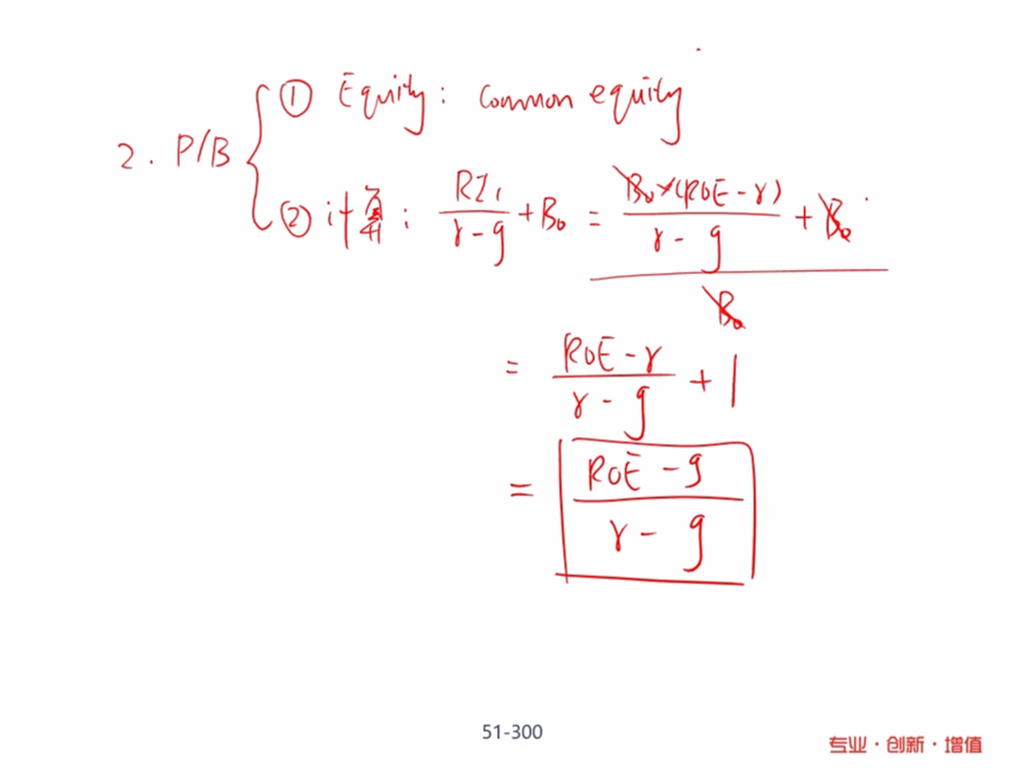 2. P/B
① Equity: Common equity
② 计算: RI₁/(r-g) + B₀ = (B₀×(ROE-r)/(r-g) + B₀)/B₀
= (ROE-r)/(r-g) + 1
= (ROE-g)/(r-g)
51-300
专业·创新·增值